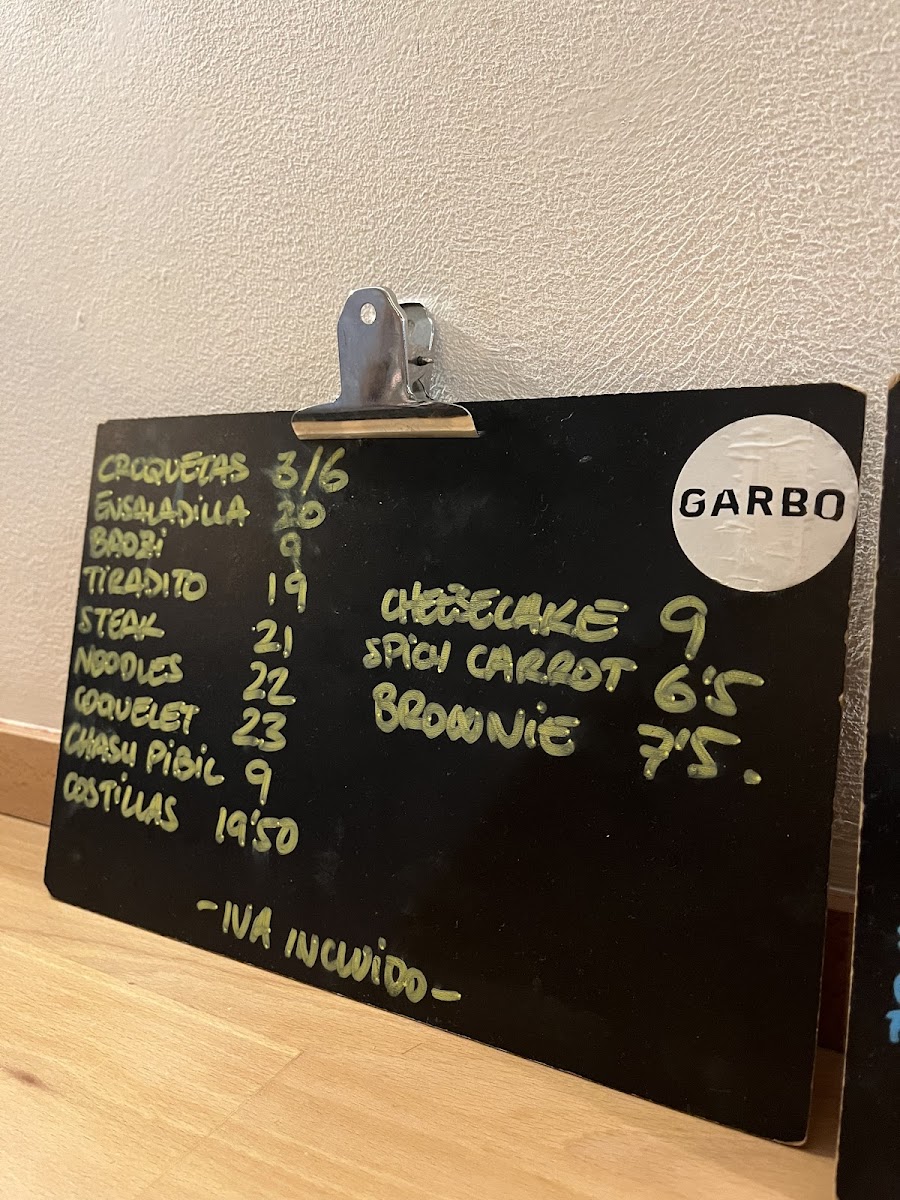 CROQUETAS 3/6
ENSALADILLA 20
BAOZI 9
TIRADITO 19
STEAK 21
NOODLES 22
COQUELET 23
CHASU PIBIL 9
COSTILLAS 19'50
-IVA INCLUIDO-
GARBO
CHEESECAKE 9
SPICY CARROT 6'5
BROWNIE 7'5.